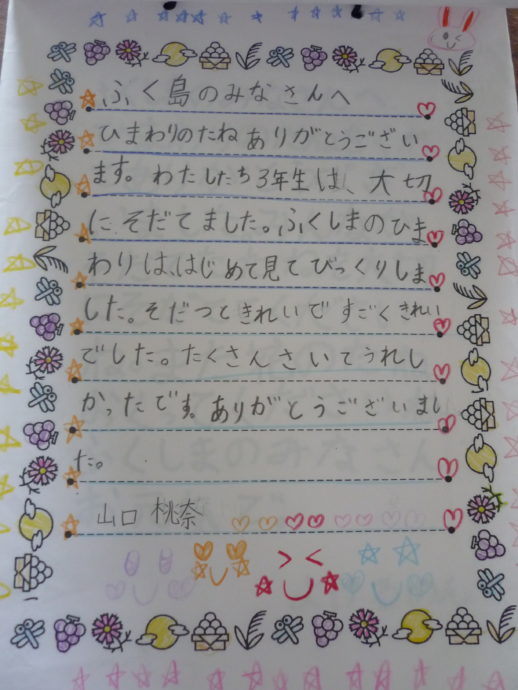 ふく島のみなさんへ
ひまわりのたねありがとうござい
ます。わたしたち3年生は、大切
にそだてました。ふくしまのひま
わりは、はじめて見てびっくりしま
した。そだつときれいですごくきれい
でした。たくさんさいてうれし
かったです。ありがとうございまし
た。
山口桃奈